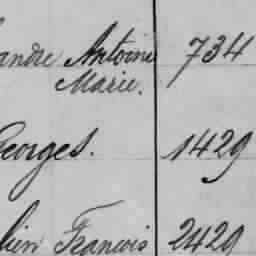 andre Antoine 734
Marie.
Georges. 1429
lien François 2429